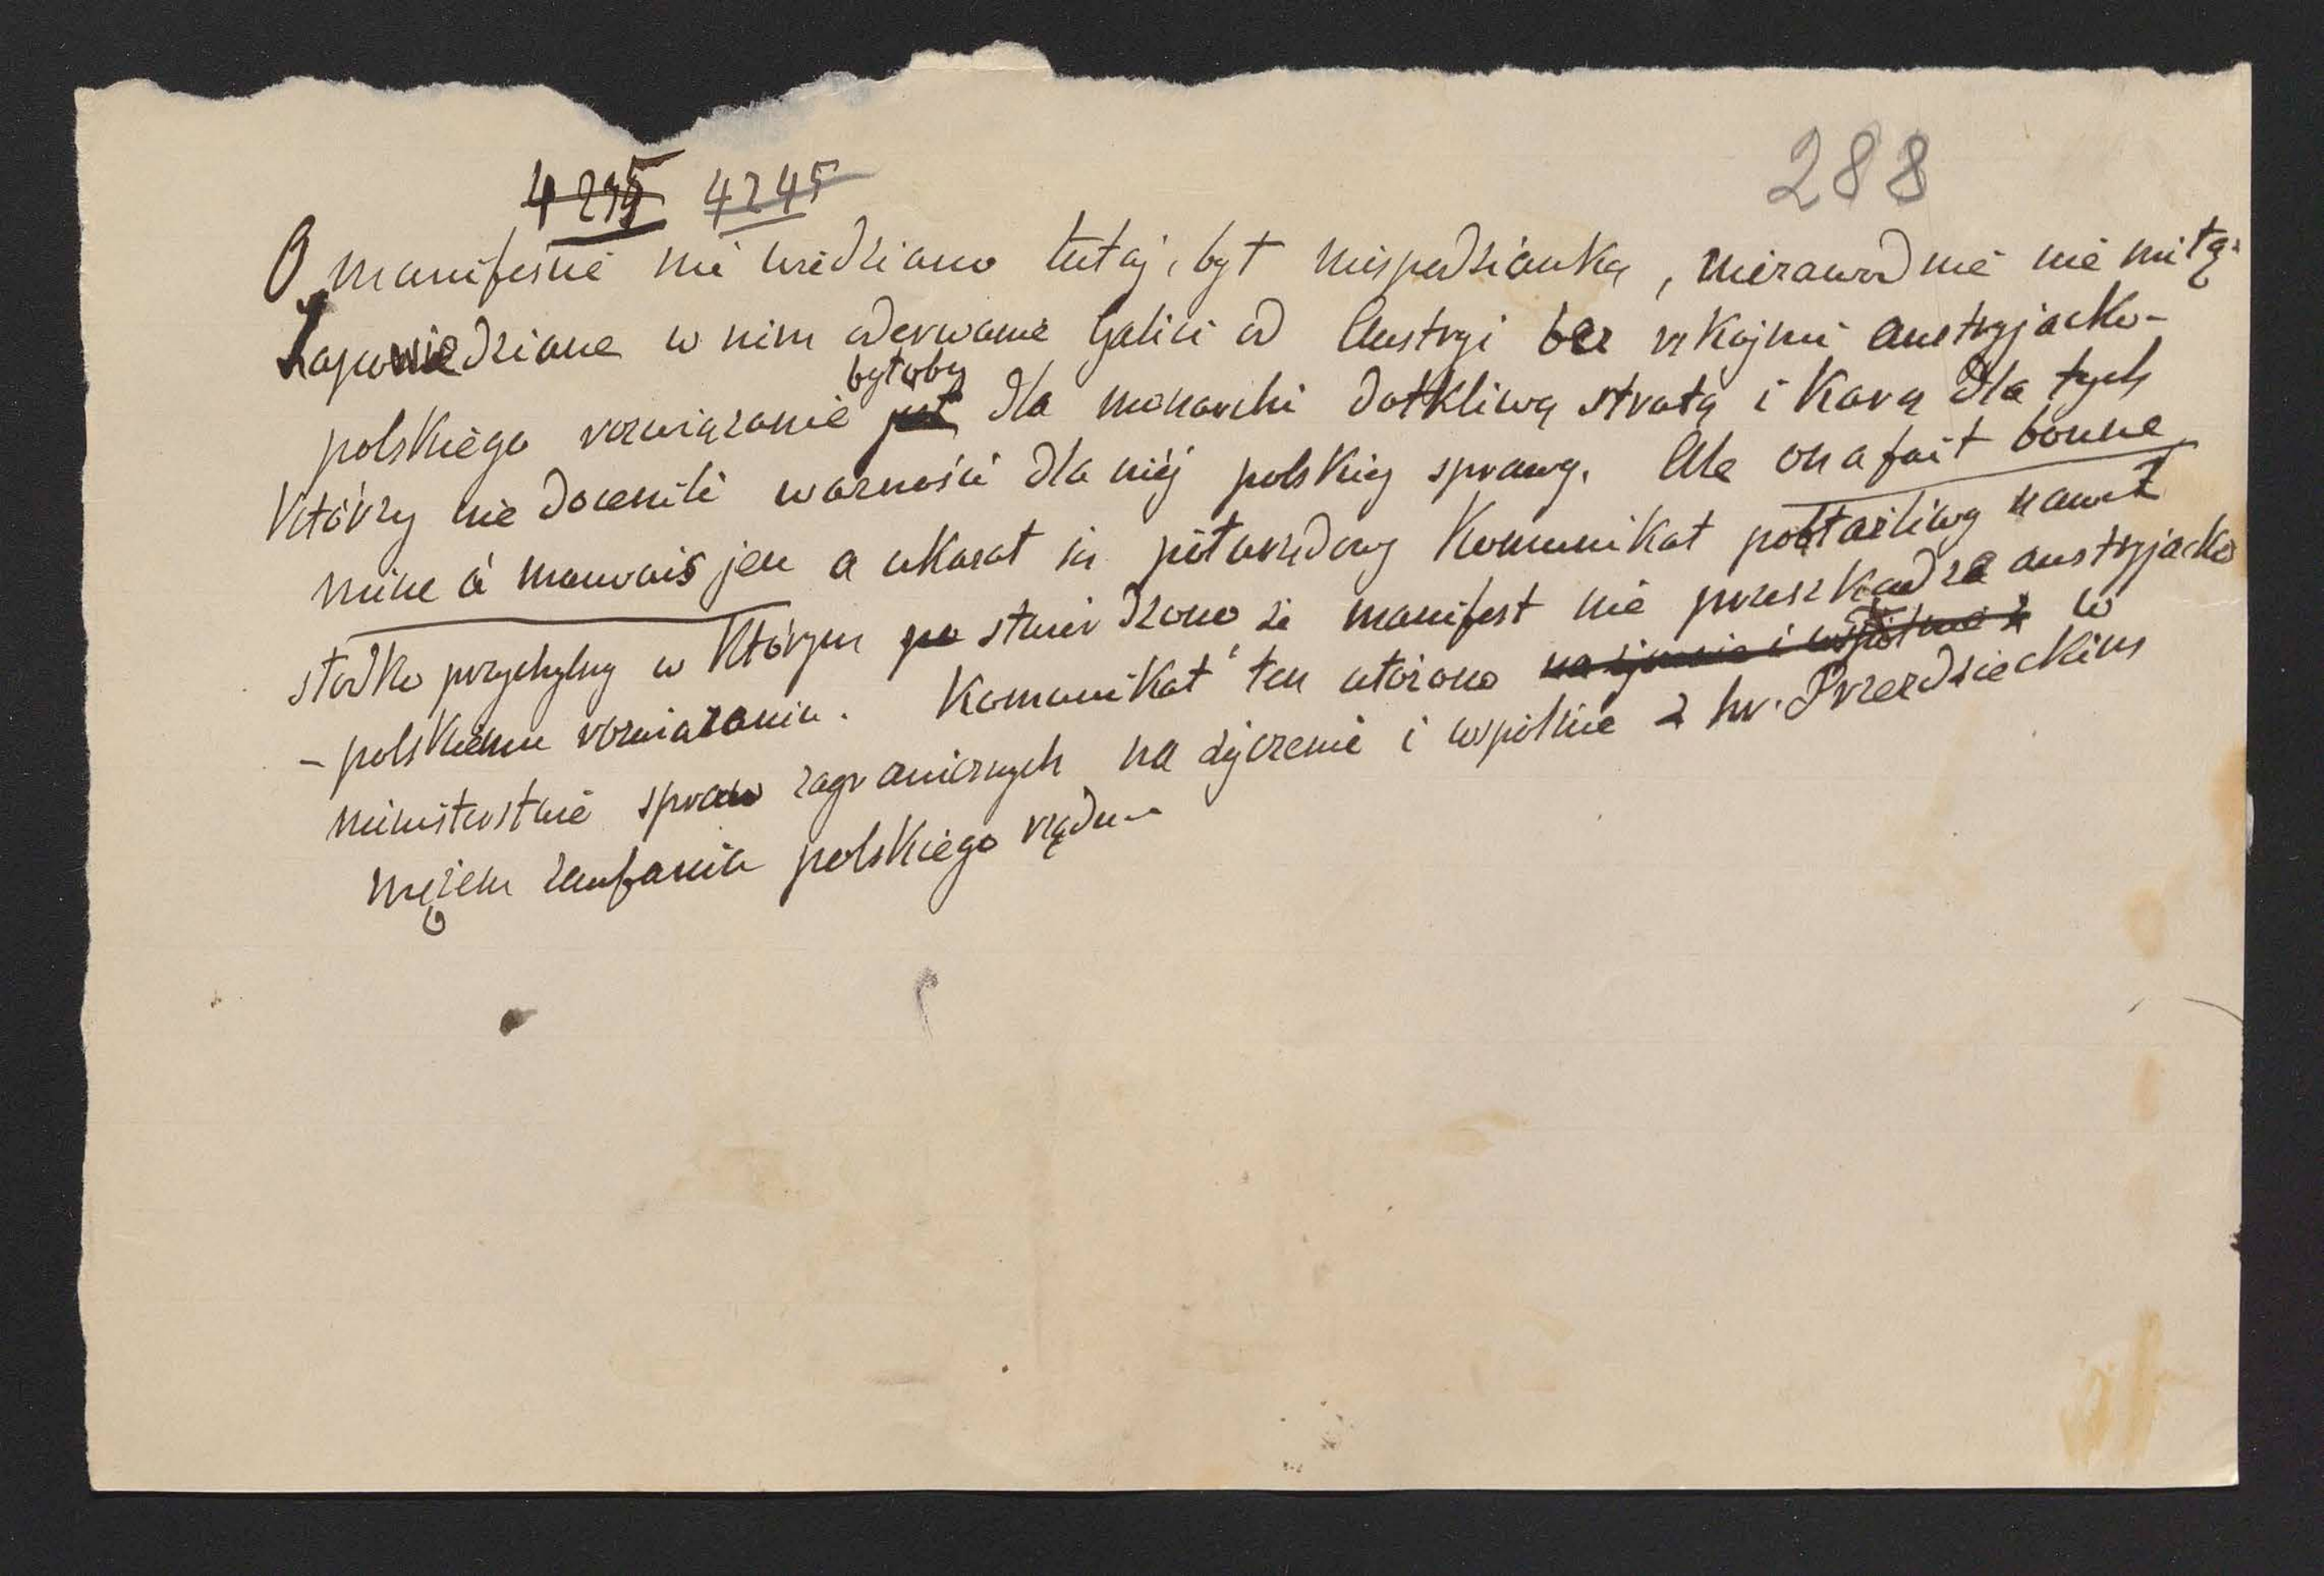 288
4245
O manifeście nie wiedziano tutaj, był niespodzianką, niezawodnie nie miłą.
Zapowiedziane w nim oderwanie Galicii od Austryi bez rękojmi austryjacko-
polskiego rozwiązanie byłoby dla monarchi dotkliwą stratą i karą dla tych
którzy nie docenili ważności dla niéj polskiej sprawy. Ale on a fait bonne
mine à mauvais jeu a ukazał się półurzędowy komunikat pobłażliwy nawet
słodko przychylny w którym stwierdzono że manifest nie przeszkadza austryjacko
- polskiemu rozwiązaniu. Komunikat ten ułożono w
ministerstwie spraw zagranicznych na życzenie i wspólnie z hr. Przezdzieckim
mężem zaufania polskiego rządu -